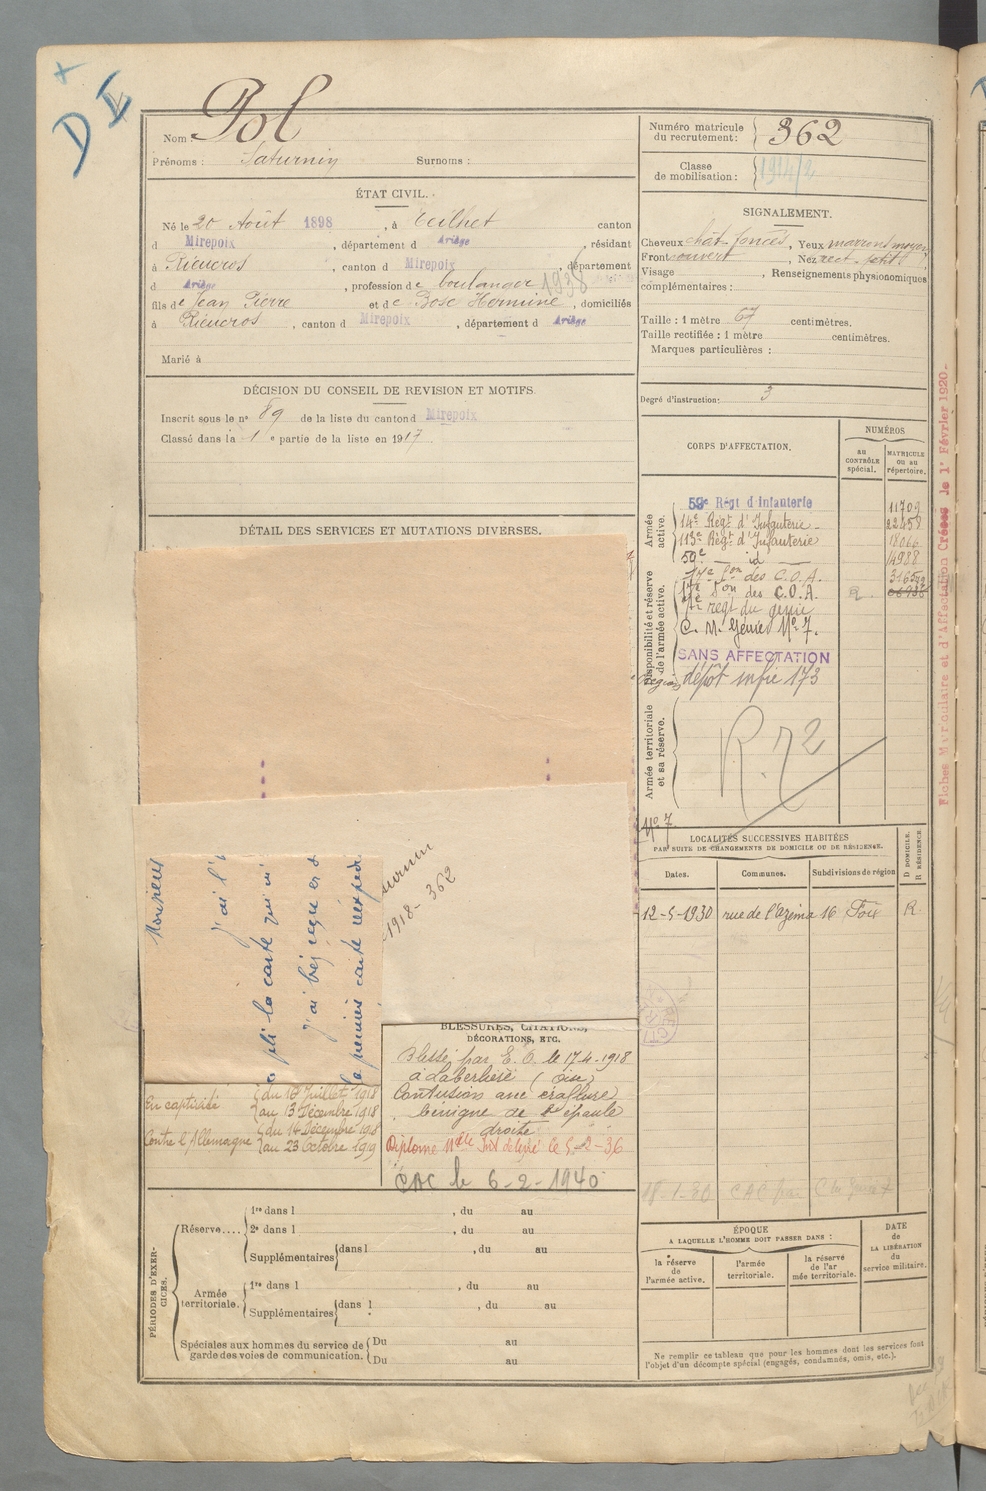 DI
Nom : Pol
Prénoms : Saturnin Surnoms :
Numéro matricule
du recrutement : 362
Classe
de mobilisation : 1914/2
ÉTAT CIVIL.
Né le 20 Août 1898, à Teilhet canton
d Mirepoix, département d Ariège, résidant
à Rieucros, canton d Mirepoix, département
d Ariège, profession de boulanger 1938
fils de Jean Pierre et de Bosc Hermine, domiciliés
à Rieucros, canton d Mirepoix, département d Ariège
Marié à
SIGNALEMENT.
Cheveux chât. foncés, Yeux marrons moyen
Front ouvert, Nez rect. petit
Visage , Renseignements physionomiques
complémentaires :
Taille : 1 mètre 67 centimètres.
Taille rectifiée : 1 mètre centimètres.
Marques particulières :
Degré d'instruction : 3
DÉCISION DU CONSEIL DE REVISION ET MOTIFS.
Inscrit sous le nº 89 de la liste du canton d Mirepoix
Classé dans la 1 e partie de la liste en 1917
DÉTAIL DES SERVICES ET MUTATIONS DIVERSES.
CORPS D'AFFECTATION.
NUMÉROS
au
CONTRÔLE
spécial.
MATRICULE
ou au
répertoire.
Armée
active.
59e Régt d'Infanterie 11702
14e Régt d'Infanterie
113e Régt d'Infanterie
59e id 14988
Disponibilité et réserve
de l'armée active.
17e Son des C.O.A.
17e Son des C.O.A. R.
régt du génie
C. M. Génie Nº 7.
SANS AFFECTATION
dépôt infie 173
Armée territoriale
et sa réserve.
R.72
Nº 7
Fiches Matriculaire et d'Affectation Créées le 1er Février 1920-
Monsieur
j'ai l'
pli la carte qui m'
j'ai bij reçue et d
la première carte réexpedi
1918 - 362
LOCALITÉS SUCCESSIVES HABITÉES
PAR SUITE DE CHANGEMENTS DE DOMICILE OU DE RÉSIDENCE.
D DOMICILE.
R RÉSIDENCE.
Dates. Communes. Subdivisions de région
12-5-1930 rue de l'Azema 16 Foix R.
18-1-30 CAC par
En captivité du 18 Juillet 1918
au 13 Décembre 1918
Contre l'Allemagne du 14 Décembre 1918
au 23 Octobre 1919
BLESSURES, CITATIONS,
DÉCORATIONS, ETC.
Blessé par E. O. le 17-4-1918
à Laberlière (Oise)
Contusion avec éraflure
benigne de l'épaule
droite
Diplome délivré le 5-2-36
CAC le 6-2-1940
PÉRIODES D'EXER-
CICES.
Réserve.... 1re dans l , du au
2e dans l , du au
Supplémentaires dans l , du au
Armée
territoriale. 1re dans l , du au
Supplémentaires dans l , du au
Spéciales aux hommes du service de
garde des voies de communication. Du au
Du au
ÉPOQUE
A LAQUELLE L'HOMME DOIT PASSER DANS :
la réserve
de
l'armée active.
l'armée
territoriale.
la réserve
de l'ar
mée territoriale.
DATE
de
LA LIBÉRATION
du
service militaire.
Ne remplir ce tableau que pour les hommes dont les services font
l'objet d'un décompte spécial (engagés, condamnés, omis, etc.).